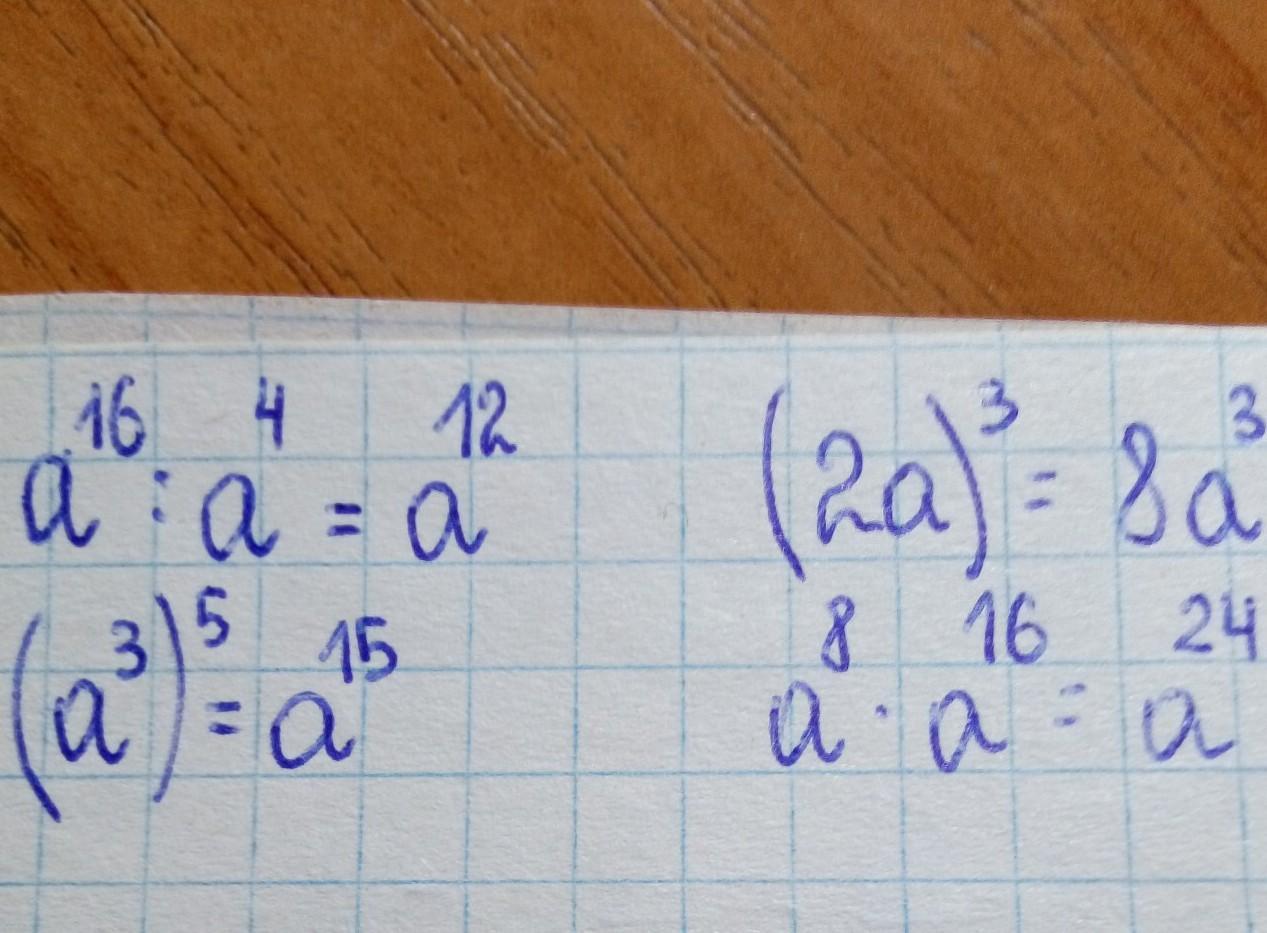 a¹⁶ : a⁴ = a¹² (2a)³ = 8a³
(a³)⁵ = a¹⁵ a⁸ · a¹⁶ = a²⁴